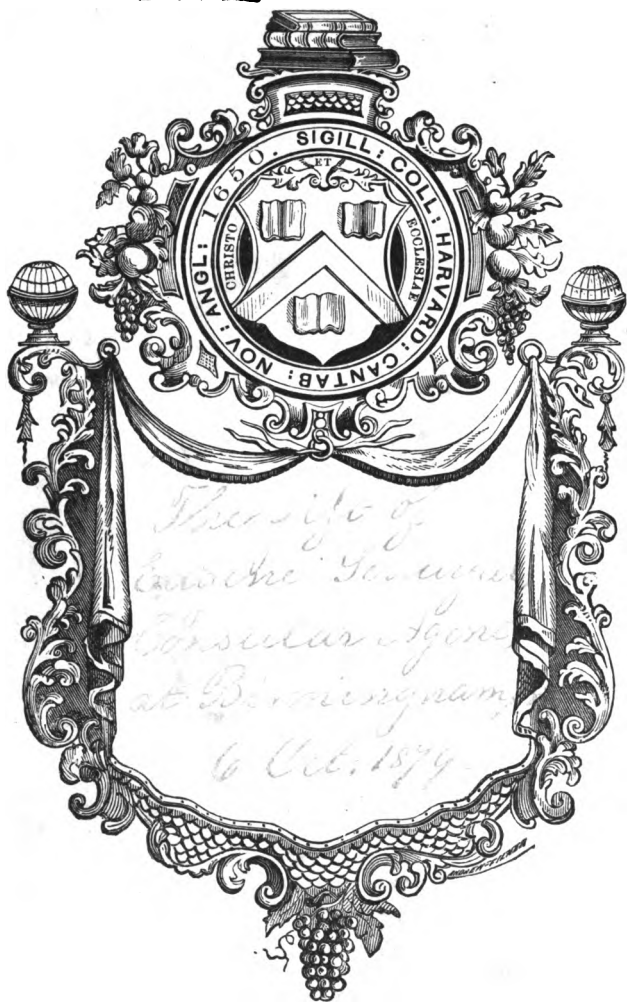 SIGILL: COLL: HARVARD: CANTAB: NOV: ANGL: 1650.
ET
CHRISTO
ECCLESIAE
The
of
Consular Agent
at Birmingham,
6 Oct. 1879